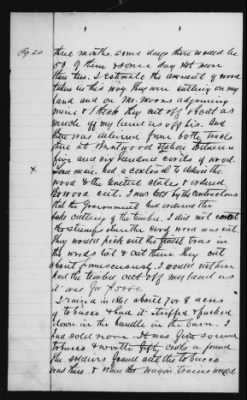 Pg 20
three months, some days there would be
50 of them & some day not more
than ten. I estimate the amount of wood
taken in this way they were cutting on my
land and on Mr. Moors adjoining
mine & I think they cut off about as
much off my land as off his. And
there was delivered from both tracts
at Brentwood station between
five and six hundred cords of wood.
had a contract to deliver the
wood & the United States & ordered
the wood cut. I was told by the contractors
that the Government had ordered the
cutting of the timber. I did not
the stumps when the cord wood was cut.
They would pick out the finest trees in
the woods lot & cut them they cut
about promiscuously. I would not have
had the timber cut off my land as
it was for $5000.
x
I raised in 1864 about 7 or 8 acres
of tobacco & had it stripped & packed
down in the bundle in the barn. I
had sold none. It was fine
tobacco & worth fifty cents a pound.
The soldiers found out the tobacco
was there & when the wagon trains would